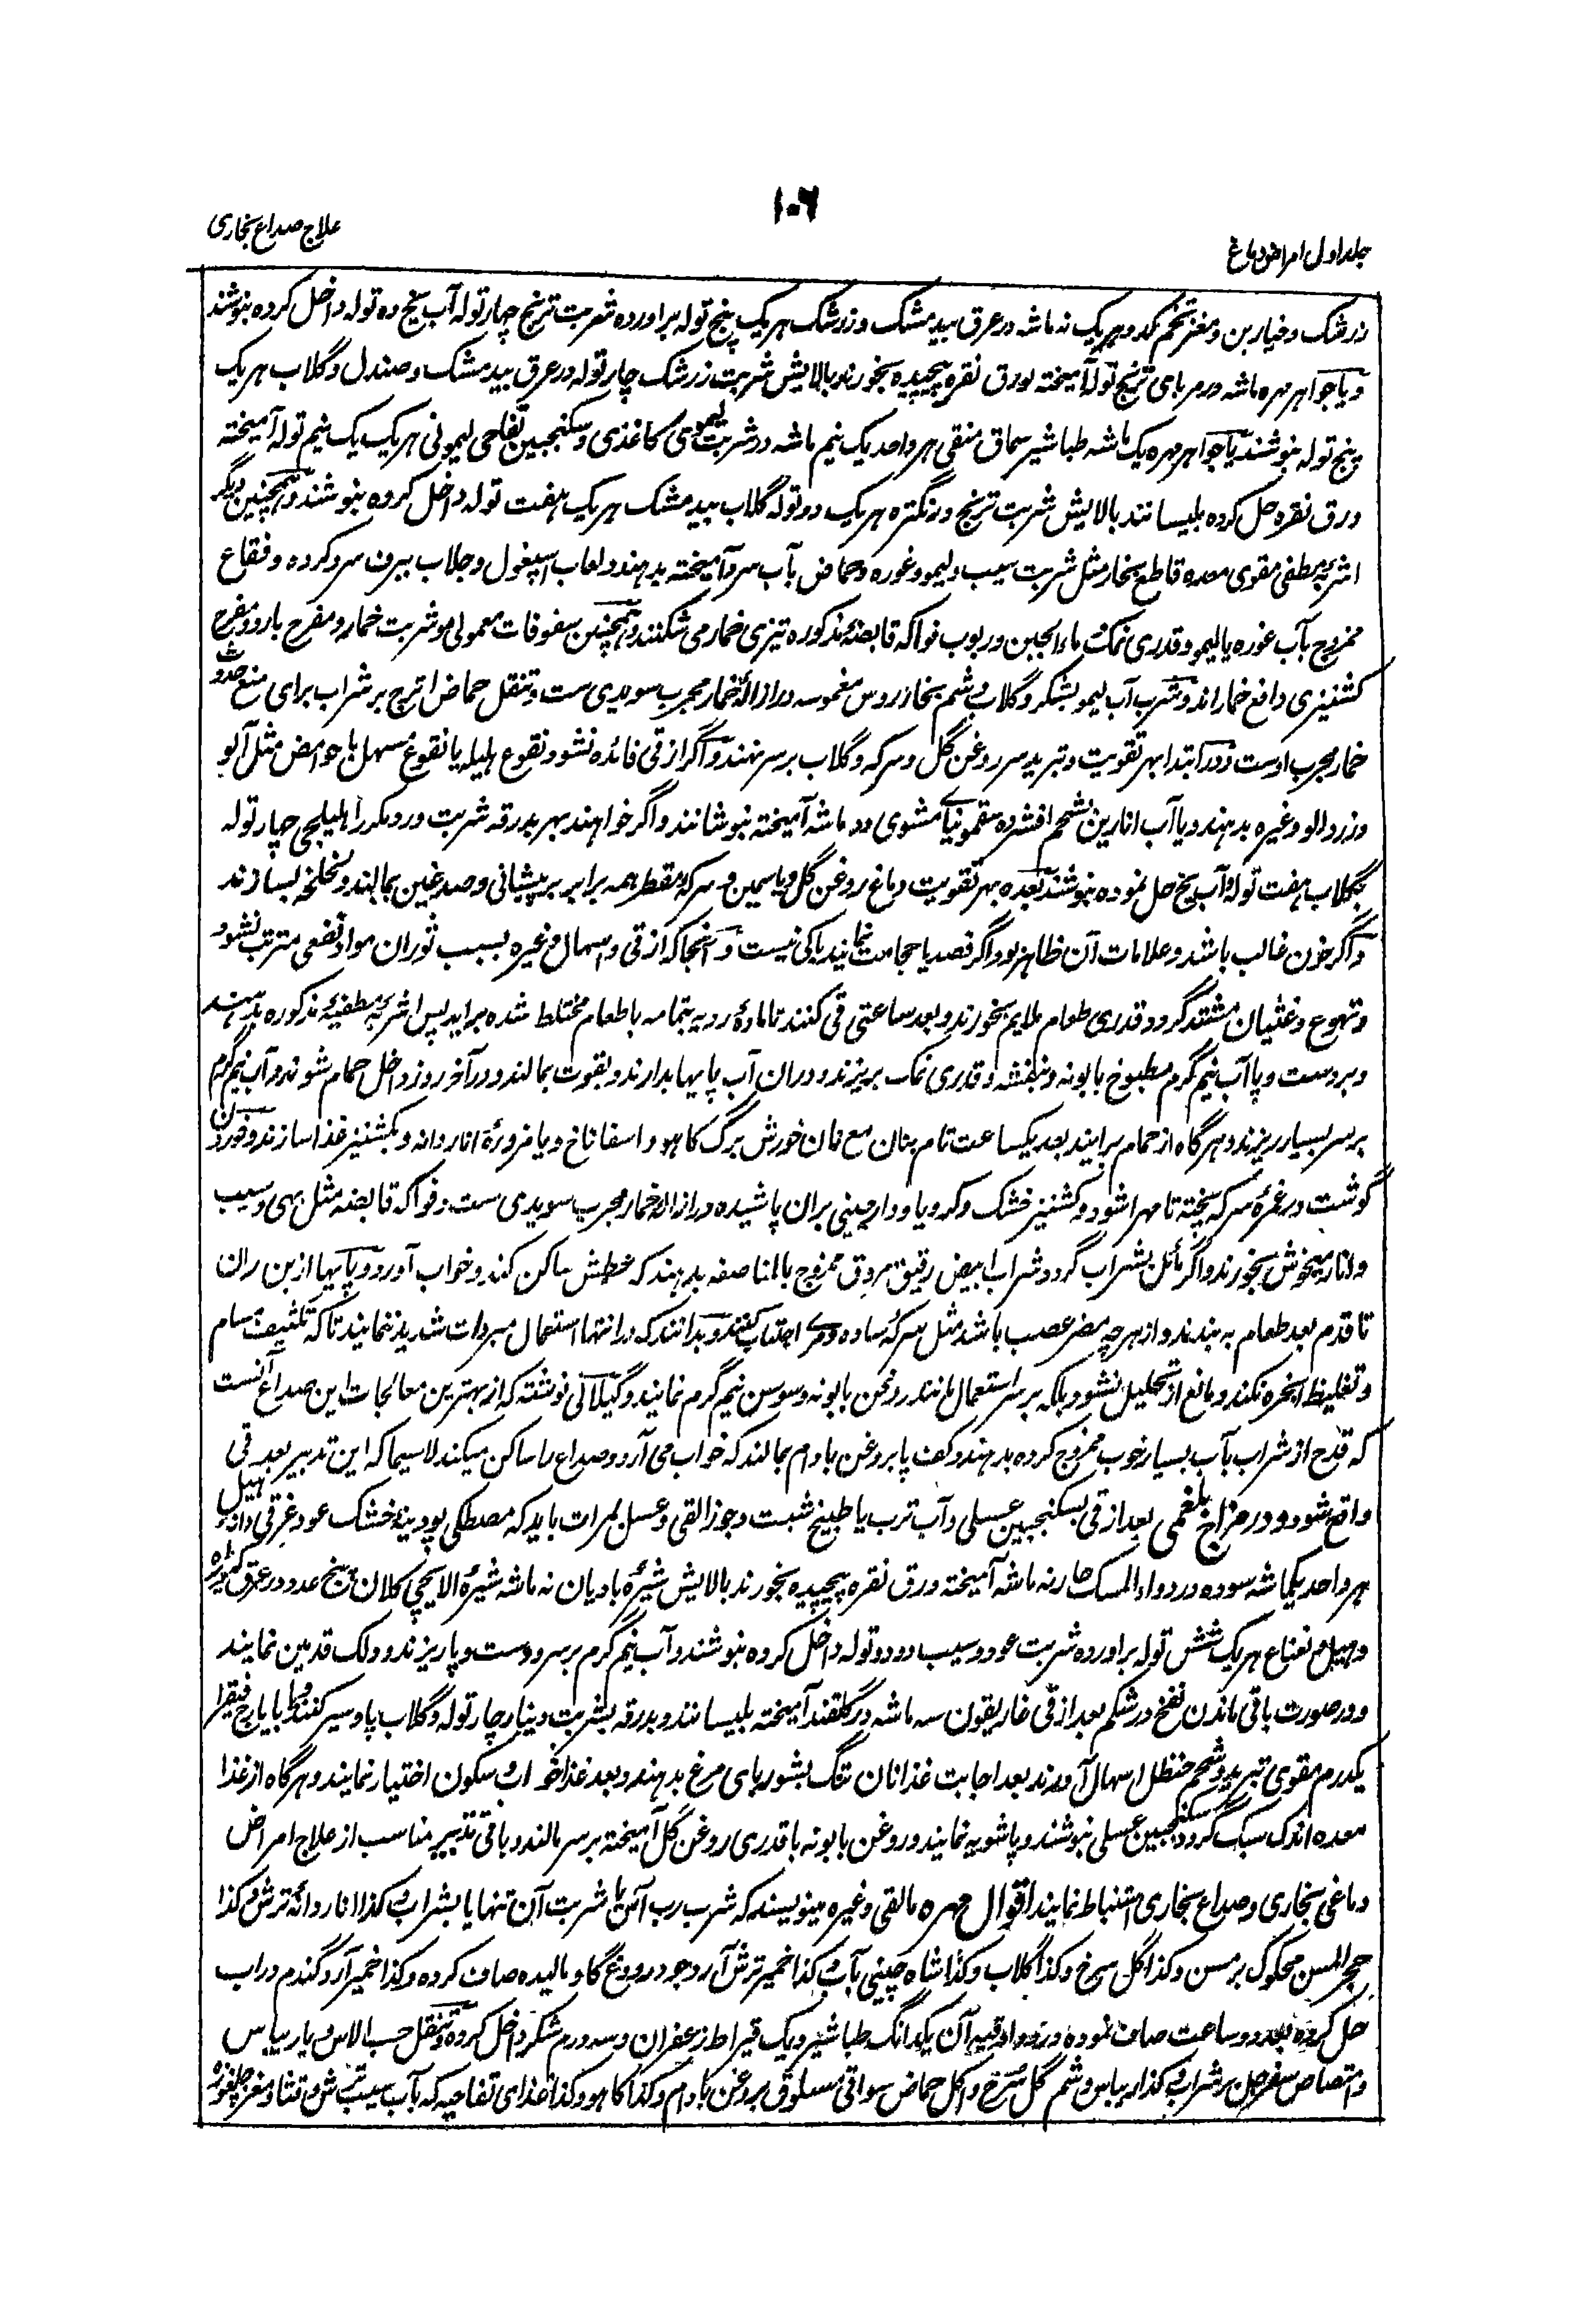 ۱۰۶
جلد اول امراض دماغ
علاج صداع بخاری
زرشک و خیارین و مغز تخم کدو هر یک نه ماشه در عرق بید مشک و زرشک هر یک پنج توله براورده شربت ترنج چهار توله آب یخ ده توله داخل کرده بنوشند
و یا جواهر مهره ماشه در مربای ترنج توله آمیخته بورق نقره پیچیده بخورند و بالایش شربت زرشک چار توله در عرق بید مشک و صندل و گلاب هر یک
پنج توله بنوشند یا جواهر مهره یک ماشه طباشیر سماق منقی هر واحد یک نیم ماشه در شربت لیموی کاغذی و سکنجبین تفاحی لیمونی هر یک یک نیم توله آمیخته
ورق نقره حل کرده بلیسانند بالایش شربت ترنج و رنگتره هر یک دو توله گلاب بید مشک هر یک هفت توله داخل کرده بنوشند و همچنین دیگر
اشربه مطفی مقوی معده قاطع بخار مثل شربت سیب و لیمو و غوره و حماض بآب سرد آمیخته بدهند و لعاب اسپغول و جلاب ببرف سرد کرده و فقاع
ممزوج بآب غوره یا لیمو و قدری نمک ماء الجبن و ربوب فواکه قابضهٔ مذکوره تیزی خمار می شکنند و همچنین سفوفات معمولی و شربت خمار و مفرح بارد و مفرح
کشنیزی دافع خمار اند و شرب آب لیمو بشکر و گلاب و شم بخار روس مغموسه در ازالهٔ خمار مجرب سویدی ست و تنقل حماض اترج بر شراب برای منع حدوث
خمار مجرب اوست و در ابتدا بهر تقویت و تبرید سر روغن گل و سرکه و گلاب بر سر نهند و اگر از قی فائده نشود نقوع هلیله یا نقوع مسهل با حوامض مثل آلو
و زردالو و غیره بدهند و یا آب انارین بشحم افشرده سقمونیای مشوی دو ماشه آمیخته بنوشانند و اگر خواهند بهر بدرقه شربت ورد مکرر اهلیلجی چهار توله
بگلاب هفت توله و آب یخ حل نموده بنوشند بعده بهر تقویت دماغ روغن گل و یاسمین و سرکه مقطر همه برابر بر پیشانی و صدغین بمالند و لخلخه بسازند
و اگر خون غالب باشد و علامات آن ظاهر بود اگر فصد یا حجامت نمایند باکی نیست و آنجا که از قی و اسهال و غیره بسبب ثوران مواد نفعی مترتب نشود
و تهوع و غثیان مشتد گردد قدری طعام ملایم بخورند و بعد ساعتی قی کنند تا مادهٔ ردیه بتمامه با طعام مختلط شده براید پس اشربه مطفیهٔ مذکوره بدهند
و بر دست و پا آب نیم گرم مطبوخ بابونه و بنفشه و قدری نمک بریزند و دران آب پایها بدارند و بقوت بمالند و در آخر روز داخل حمام شوند و آب نیم گرم
بر سر بسیار ریزند و هرگاه از حمام برایند بعد یکساعت تام بنان مع نان خورش برگ کاهو و اسفاناخ و یا مزورهٔ اناردانه و بکشنیز غذا سازند و خوردن
گوشت در غمرهٔ سرکه پخته تا مهرا شود و کشنیز خشک و کرویا و دارچینی بران پاشیده در ازالهٔ خمار مجرب سویدی ست و فواکه قابضه مثل بهی و سیب
و انار میخوش بخورند و اگر مائل بشراب گردد شراب ابیض رقیق مروق ممزوج بالمناصفه بدهند که عطش ساکن کند و خواب آورد و پایها از بن ران
تا قدم بعد طعام به بندند و از هرچه مضر عصب باشد مثل سرکه ساده و مری اجتناب کنند و بدانند که در انتها استعمال مبردات شدید ننمایند تا که تکثیف مسام
و تغلیظ ابخره نکند و مانع از تحلیل نشود بلکه بر سر استعمال مانند روغن بابونه و سوسن نیم گرم نمایند و گیلانی نوشته که از بهترین معالجات این صداع آنست
که قدح از شراب بآب بسیار خوب ممزوج کرده بدهند و کف پا بروغن بادام بمالند که خواب می آرد و صداع را ساکن میکند لاسیما که این تدبیر بعد قی
واقع شود و در مزاج بلغمی بعد از قی بسکنجبین عسلی و آب ترب یا طبیخ شبت و جوز القی و عسل بمرات باید که مصطکی پودینهٔ خشک عود غرقی دانه هیل
هر واحد یکماشه سوده در دواء المسک حار نه ماشه آمیخته ورق نقره پیچیده بخورند بالایش شیرهٔ بادیان نه ماشه شیرهٔ الایچی کلان پنج عدد در عرق
و هیل و نعناع هر یک شش توله براورده شربت عود و سیب دو دو توله داخل کرده بنوشند و آب نیم گرم بر سر و دست و پا ریزند و دلک قدمین نمایند
و در صورت باقی ماندن نفخ در شکم بعد از قی غاریقون سه ماشه در گلقند آمیخته بلیسانند و بدرقه بشربت دینار چار توله و گلاب پاو سیر کنند و یا بایارج فیقرا
یکدرم مقوی بتربد و شحم حنظل اسهال آورند بعد اجابت غذا نان تنک بشوربای مرغ بدهند و بعد غذا خواب و سکون اختیار نمایند و هرگاه از غذا
معده اندک سبک گردد سکنجبین عسلی بنوشند و پاشویه نمایند و روغن بابونه با قدری روغن گل آمیخته بر سر مالند و باقی تدبیر مناسب از علاج امراض
دماغی بخاری و صداع بخاری استنباط نمایند اقوال مهره مالقی و غیره مینویسند که شرب رب آس یا شربت آن تنها یا بشراب و کذا اناردانهٔ ترش و کذا
حجر المسن محکوک بر مسن و کذا گل سرخ و کذا گلاب و کذا شاه چینی بآب و کذا خمیر ترش آرد جو در دوغ گاو مالیده صاف کرده و کذا خمیر آرد گندم در آب
حل کرده بعد دو ساعت صاف نموده در دو اوقیه آن یکدانگ طباشیر و یک قیراط زعفران و سه درم شکر داخل کرده و تنقل حب الاس و یا ریباس
و امتصاص سفرجل بر شراب و کذا ریباس و شم گل سرخ و اکل حماض سواقی مسلوق بروغن بادام و کذا کاهو و کذا غذای تفاحیه که بآب سیب ترش و قثا و مغز چلغوزه